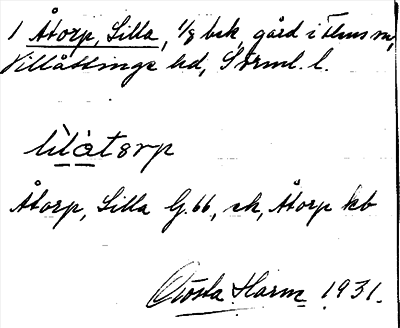 1 Åtorp, Lilla, 1/8 bsk, gård i Flens sn,
Villåttinge hd, Sörml. l.
lìlàtɛrp
Åtorp, Lilla G.66, sk, Åtorp kb
Gösta Harm 1931.